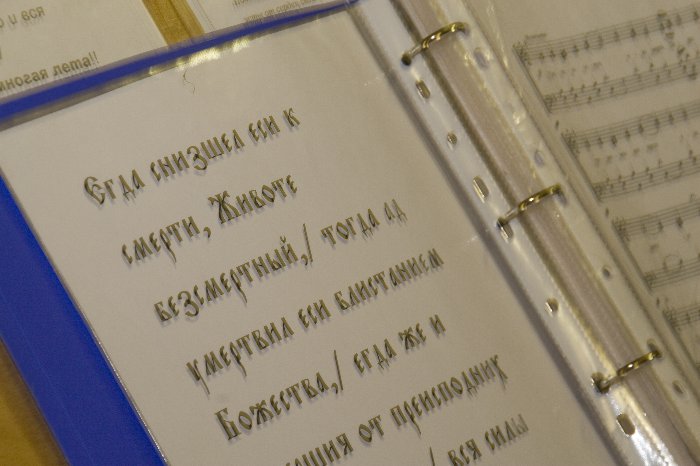 о и вся
многая лета!!
Егда снизшел еси к
смерти, Животе
безсмертный,/ тогда ад
умертвил еси блистанием
Божества,/ егда же и
от преисподних
/ вся силы